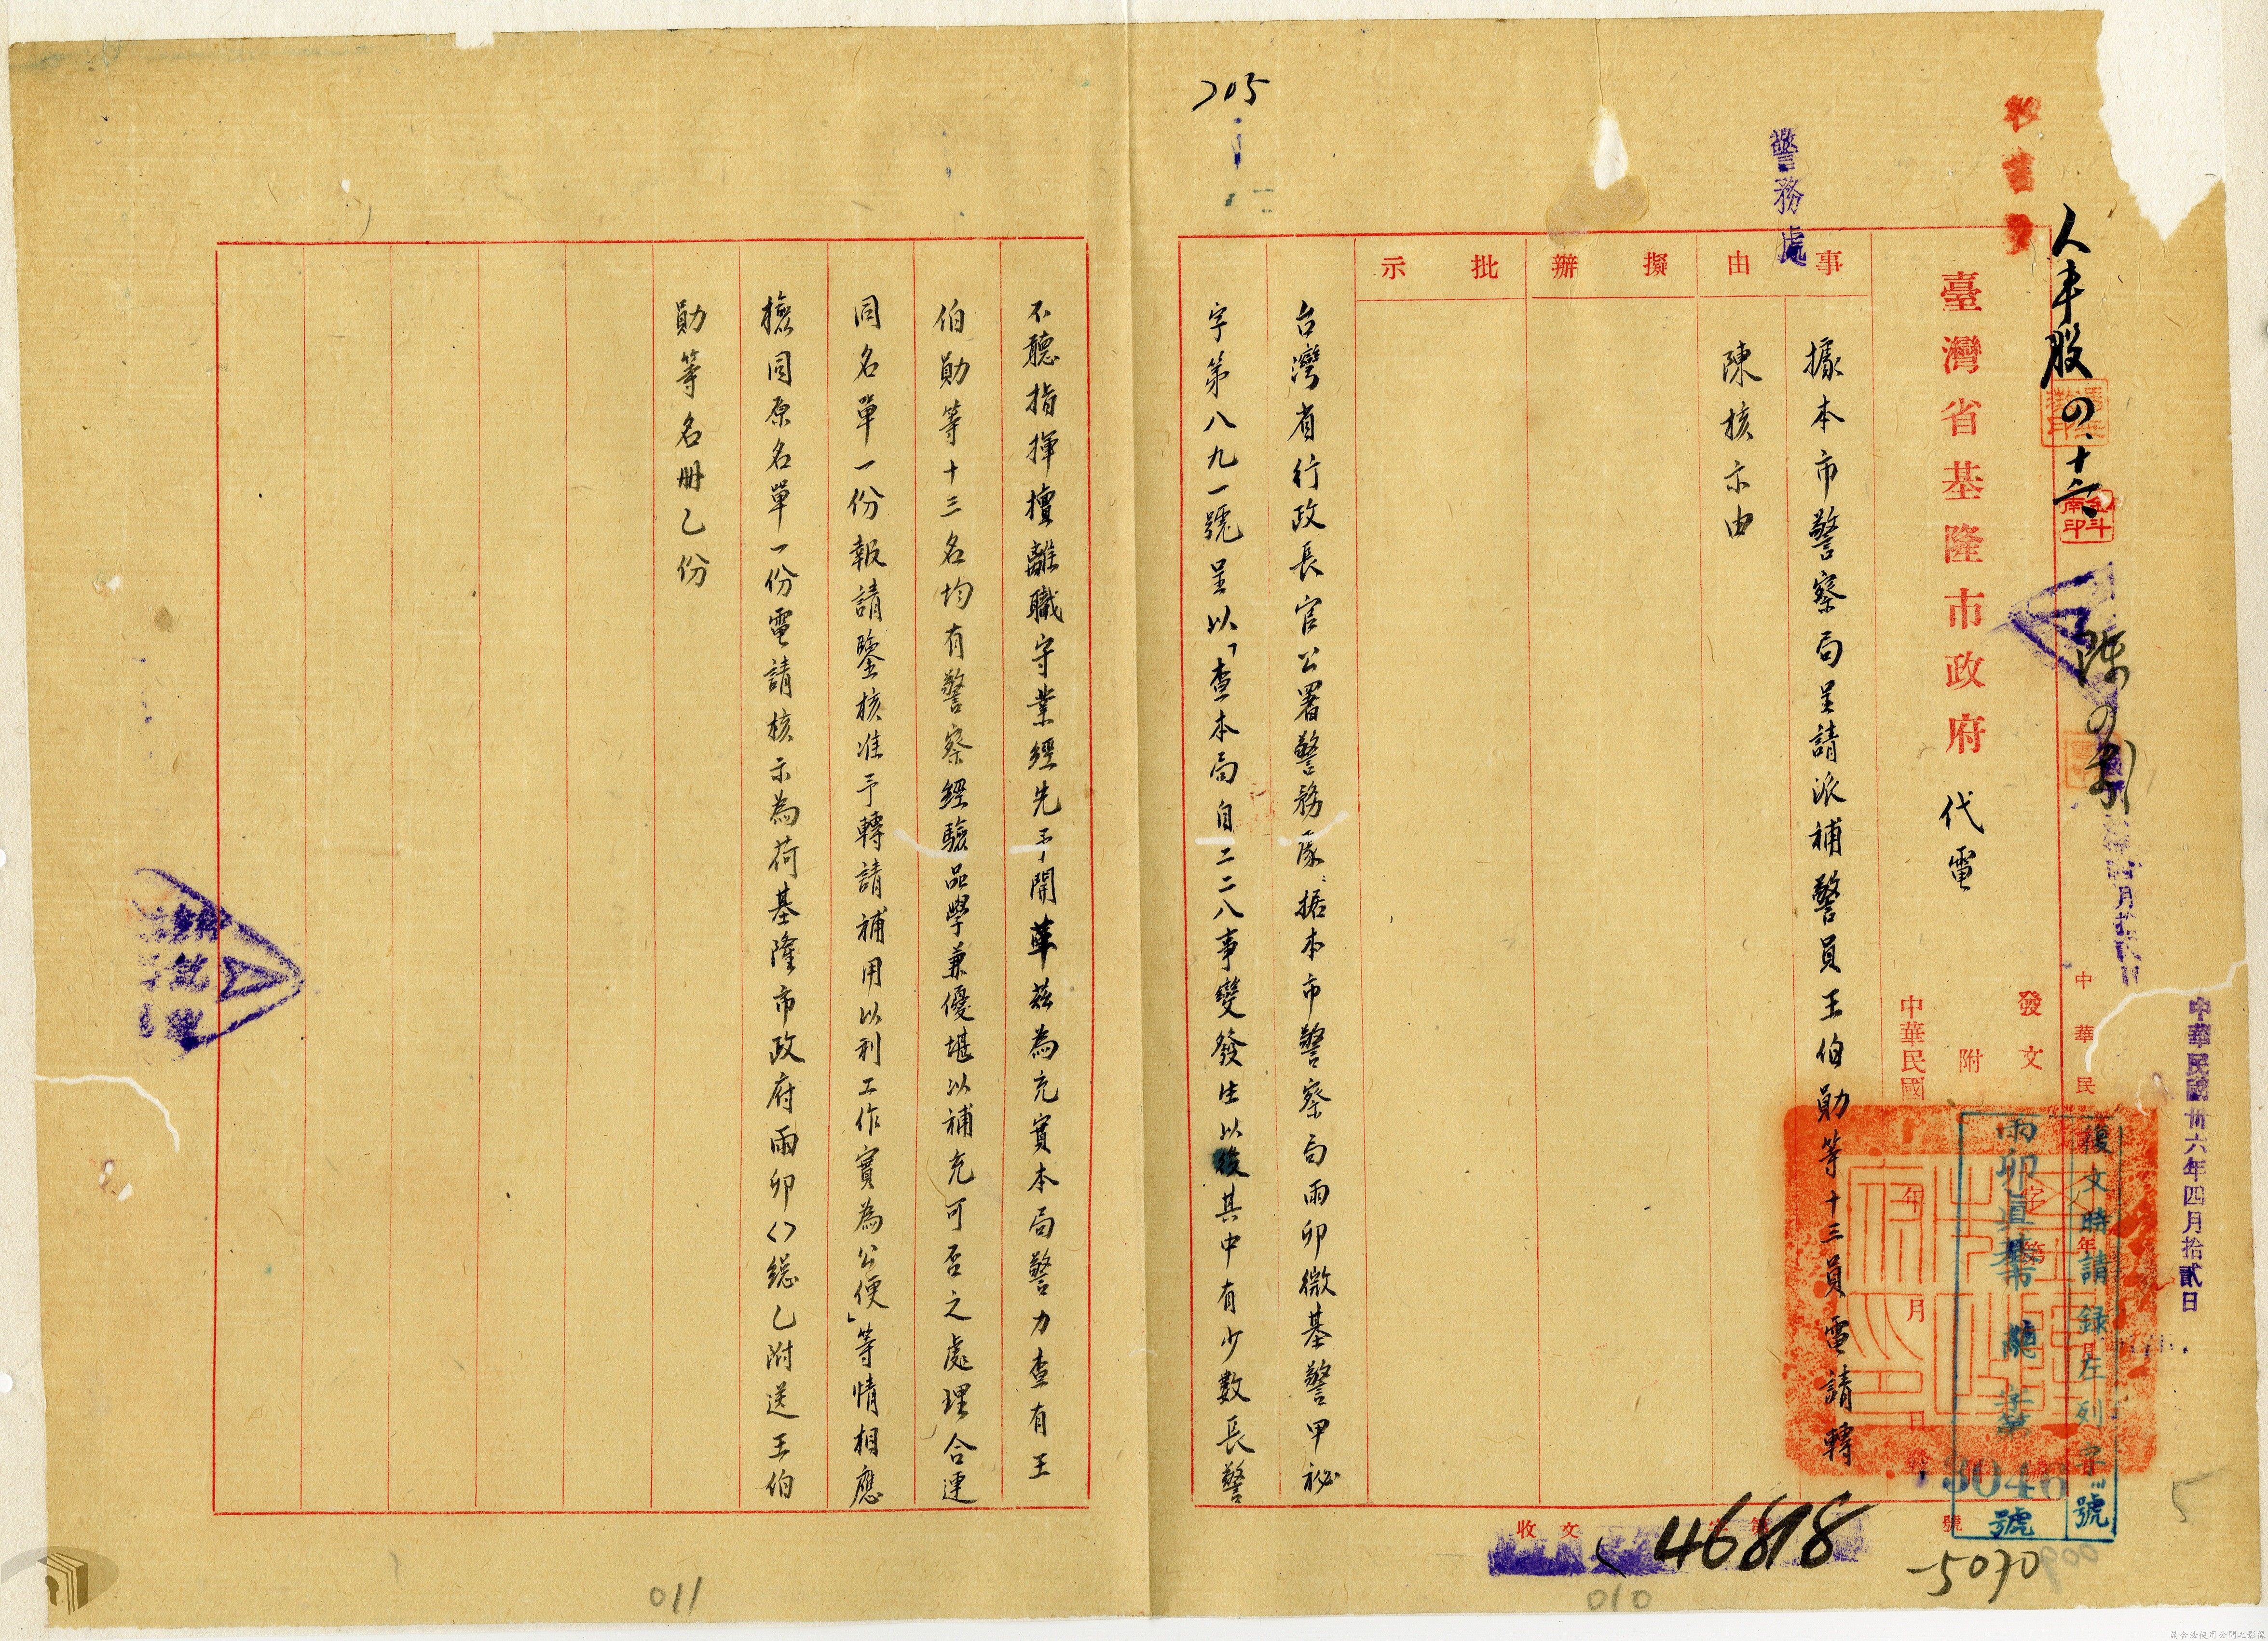 中華民國卅六年四月拾貳日
人事股
臺灣省基隆市政府代電
發文
附
中華民國 年 月 日
復文時請録左列字號
3046
號
警務處
事由
據本市警察局呈請派補警員王伯勛等十三員電請轉
陳核示由
擬辦
批示
台灣省行政長官公署警務處：据本市警察局雨卯微基警甲祕
字第八九一號呈以「查本局自二二八事變發生以後其中有少數長警
收文
46818
5070
010
705
不聽指揮擅離職守業經先予開革茲為充實本局警力查有王
伯勛等十三名均有警察經驗品學兼優堪以補充可否之處理合連
同名單一份報請鑒核准予轉請補用以利工作實為公便」等情相應
檢同原名單一份電請核示為荷基隆市政府雨卯()總乙附送王伯
勛等名册乙份
011
請合法使用公開之影像